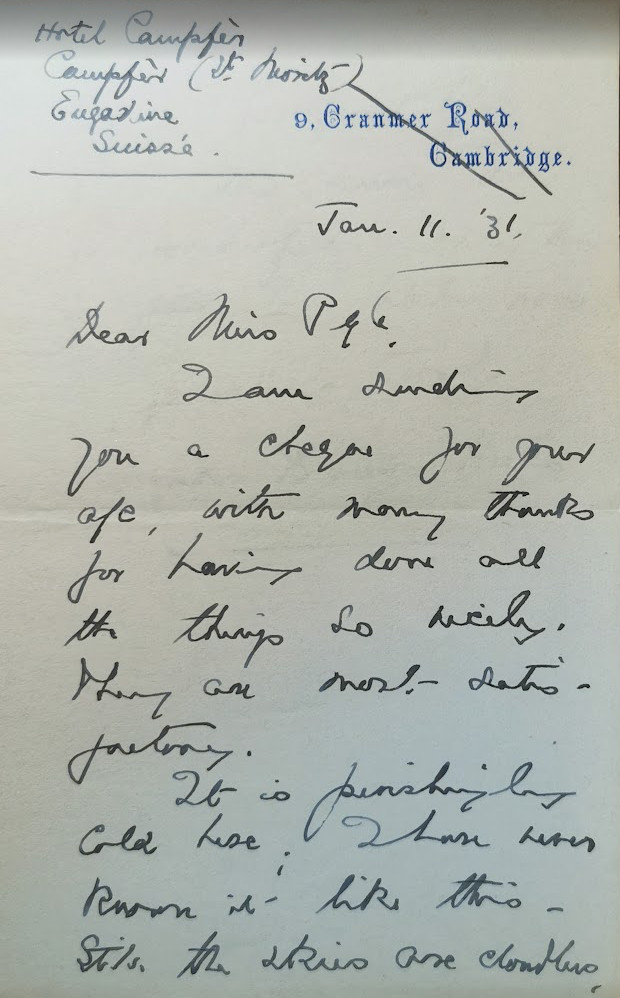 Hotel Campfèr
Campfèr (St. Moritz)
Engadine
Suisse.
9, Cranmer Road,
Cambridge.
Jan. 11. '31.
Dear Miss
I am sending
you a cheque for your
a/c, with many thanks
for having done all
the things so nicely.
They are most satis-
factory.
It is perishingly
cold here; I have never
known it like this -
Still the skies are cloudless,